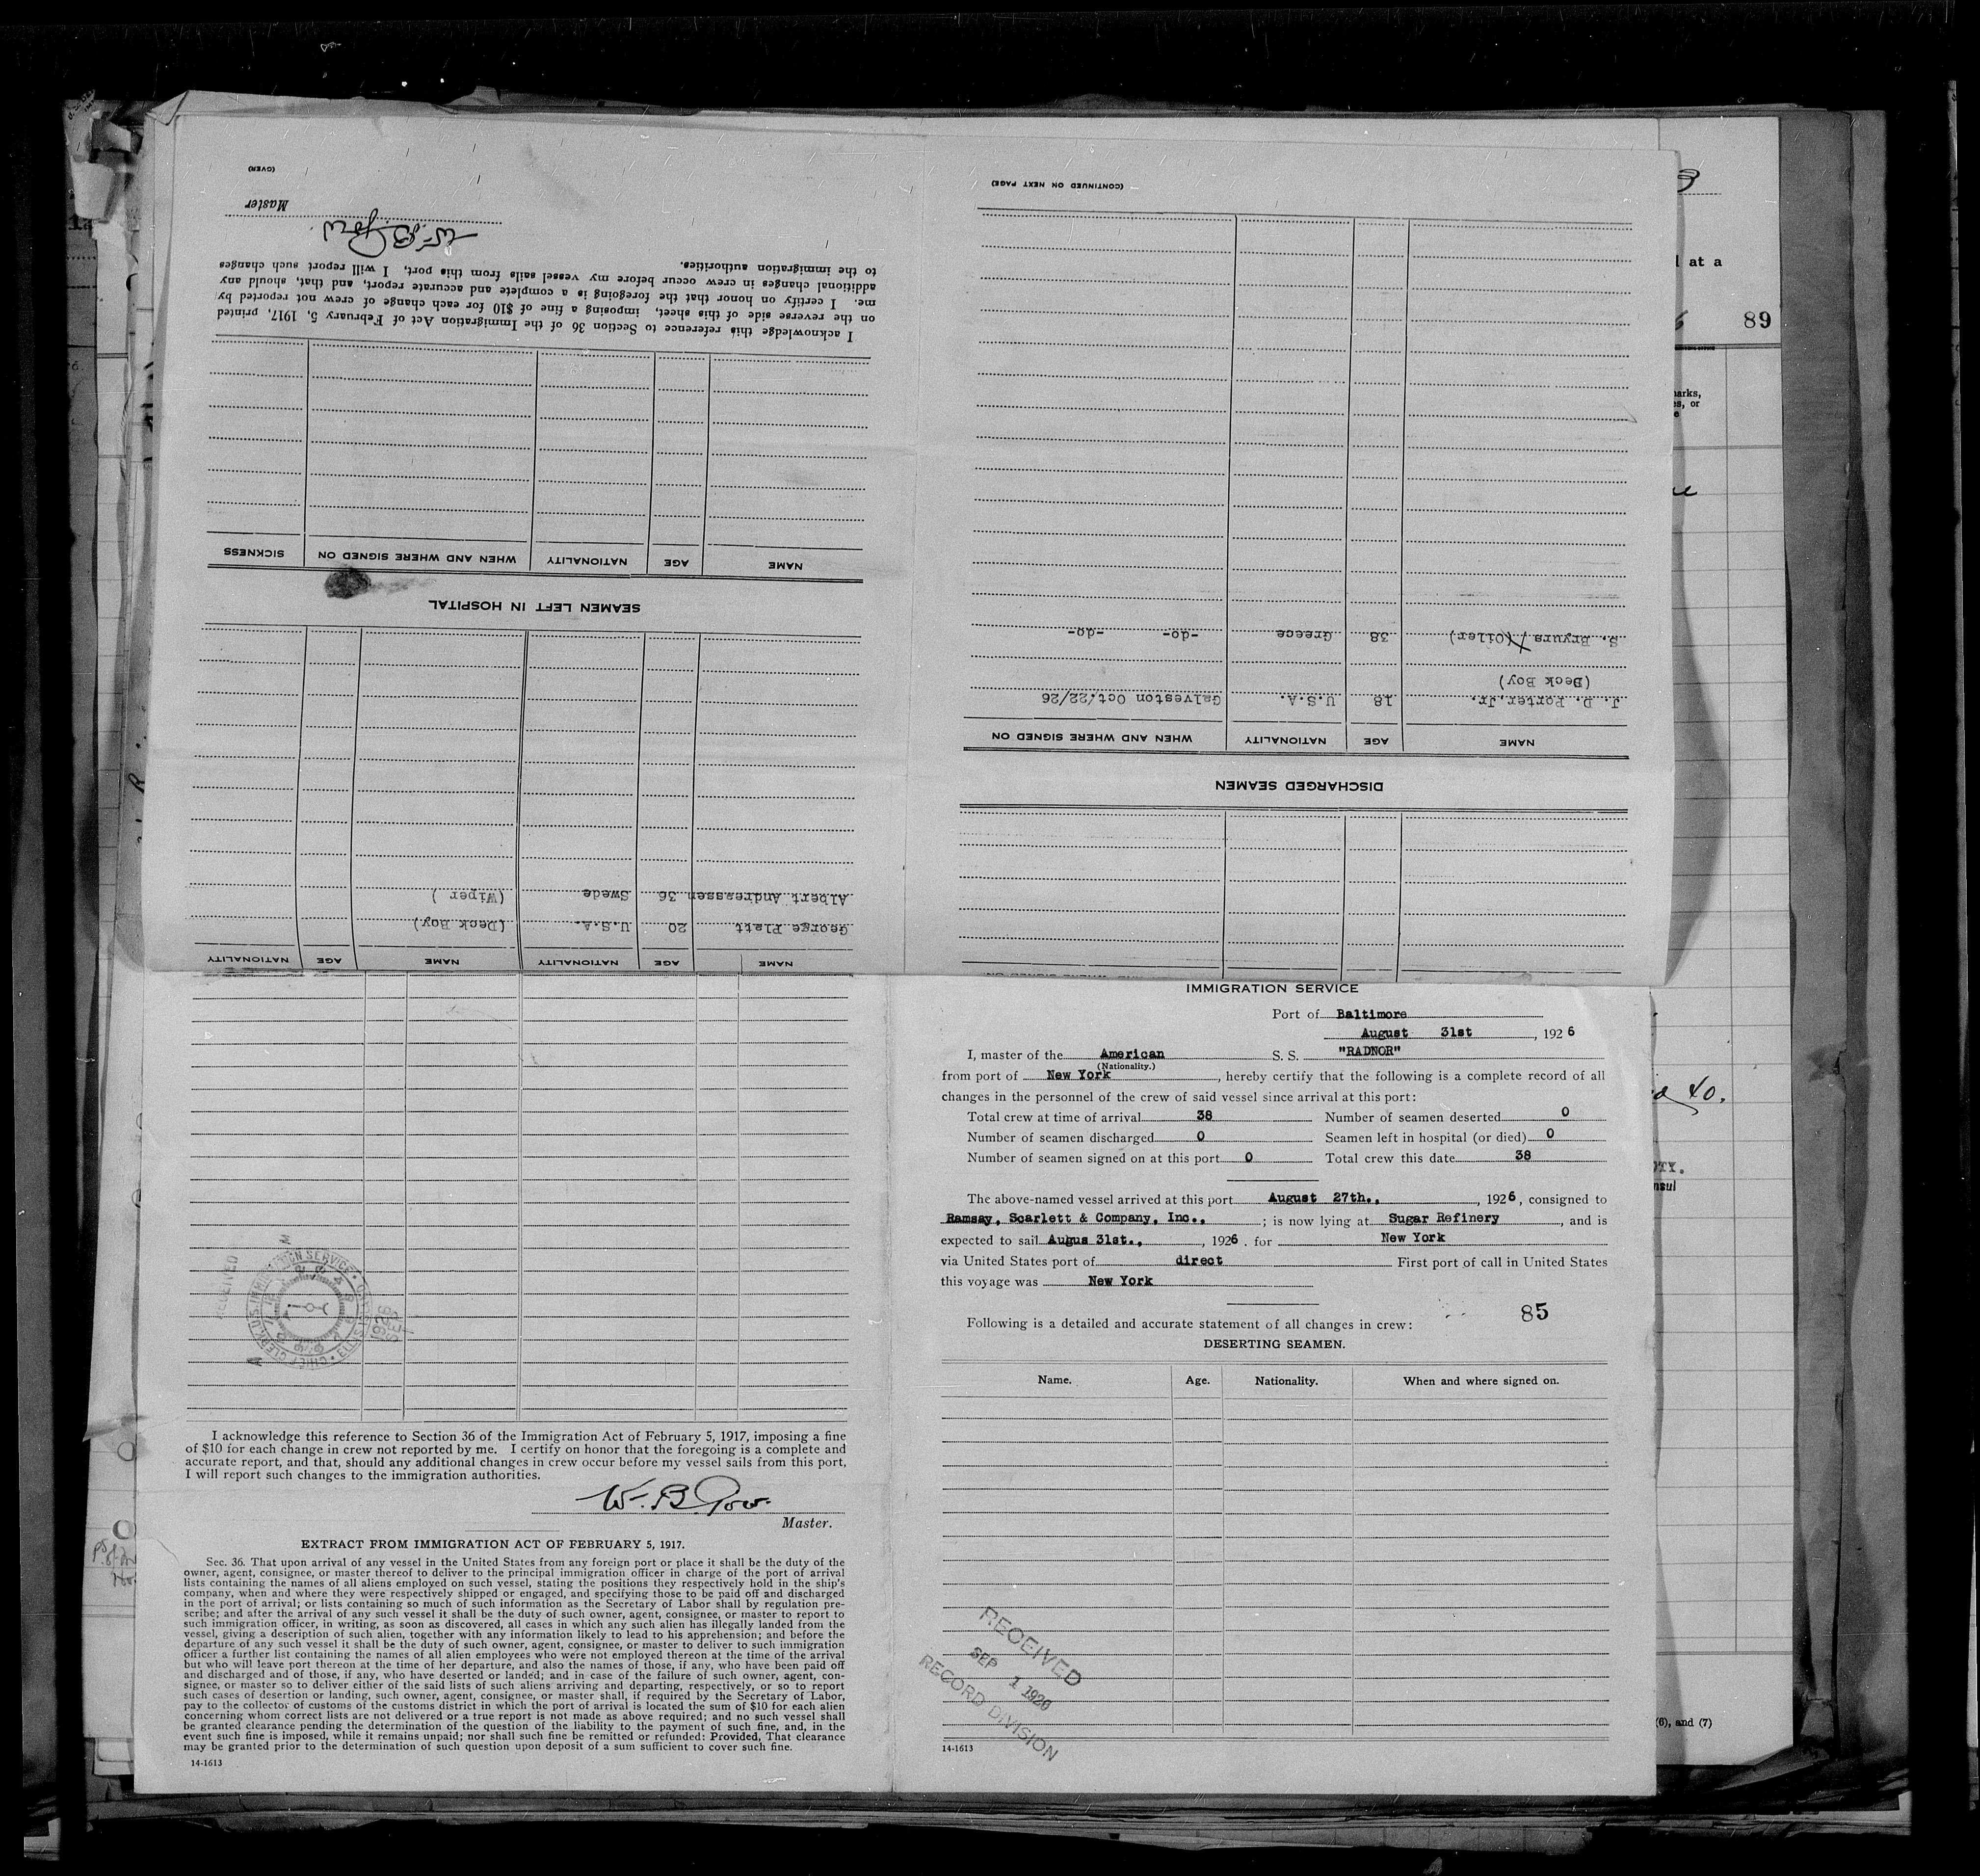 DISCHARGED SEAMEN
NAME AGE NATIONALITY WHEN AND WHERE SIGNED ON
J. D. Porter, Jr. 18 U.S.A. Galveston Oct/22/26
(Deck Boy)
S. Bryurs (Oiler) 38 Greece -do- -do-
(CONTINUED ON NEXT PAGE)
NAME AGE NATIONALITY NAME AGE NATIONALITY
George Platt 20 U.S.A. (Deck Boy)
Albert Andreassen 36 Swede (Wiper )
SEAMEN LEFT IN HOSPITAL
NAME AGE NATIONALITY WHEN AND WHERE SIGNED ON SICKNESS
I acknowledge this reference to Section 36 of the Immigration Act of February 5, 1917, printed
on the reverse side of this sheet, imposing a fine of $10 for each change of crew not reported by
me. I certify on honor that the foregoing is a complete and accurate report, and that, should any
additional changes in crew occur before my vessel sails from this port, I will report such changes
to the immigration authorities.
W. B. Gow
Master
(OVER)
at a
89
arks,
s, or
40.
nsul
(6), and (7)
IMMIGRATION SERVICE
Port of Baltimore
August 31st, 1926
I, master of the American S. S. "RADNOR"
(Nationality.)
from port of New York, hereby certify that the following is a complete record of all
changes in the personnel of the crew of said vessel since arrival at this port:
Total crew at time of arrival 38 Number of seamen deserted 0
Number of seamen discharged 0 Seamen left in hospital (or died) 0
Number of seamen signed on at this port 0 Total crew this date 38
The above-named vessel arrived at this port August 27th., , 1926, consigned to
Ramsay, Scarlett & Company, Inc., ; is now lying at Sugar Refinery, and is
expected to sail Augus 31st., , 1926. for New York
via United States port of direct First port of call in United States
this voyage was New York
85
Following is a detailed and accurate statement of all changes in crew:
DESERTING SEAMEN.
Name. Age. Nationality. When and where signed on.
RECEIVED
SEP 1 1926
RECORD DIVISION
14-1613
RECEIVED
I acknowledge this reference to Section 36 of the Immigration Act of February 5, 1917, imposing a fine
of $10 for each change in crew not reported by me. I certify on honor that the foregoing is a complete and
accurate report, and that, should any additional changes in crew occur before my vessel sails from this port,
I will report such changes to the immigration authorities.
W. B. Gow.
Master.
EXTRACT FROM IMMIGRATION ACT OF FEBRUARY 5, 1917.
Sec. 36. That upon arrival of any vessel in the United States from any foreign port or place it shall be the duty of the
owner, agent, consignee, or master thereof to deliver to the principal immigration officer in charge of the port of arrival
lists containing the names of all aliens employed on such vessel, stating the positions they respectively hold in the ship's
company, when and where they were respectively shipped or engaged, and specifying those to be paid off and discharged
in the port of arrival; or lists containing so much of such information as the Secretary of Labor shall by regulation pre-
scribe; and after the arrival of any such vessel it shall be the duty of such owner, agent, consignee, or master to report to
such immigration officer, in writing, as soon as discovered, all cases in which any such alien has illegally landed from the
vessel, giving a description of such alien, together with any information likely to lead to his apprehension; and before the
departure of any such vessel it shall be the duty of such owner, agent, consignee, or master to deliver to such immigration
officer a further list containing the names of all alien employees who were not employed thereon at the time of the arrival
but who will leave port thereon at the time of her departure, and also the names of those, if any, who have been paid off
and discharged and of those, if any, who have deserted or landed; and in case of the failure of such owner, agent, con-
signee, or master so to deliver either of the said lists of such aliens arriving and departing, respectively, or so to report
such cases of desertion or landing, such owner, agent, consignee, or master shall, if required by the Secretary of Labor,
pay to the collector of customs of the customs district in which the port of arrival is located the sum of $10 for each alien
concerning whom correct lists are not delivered or a true report is not made as above required; and no such vessel shall
be granted clearance pending the determination of the question of the liability to the payment of such fine, and, in the
event such fine is imposed, while it remains unpaid; nor shall such fine be remitted or refunded: Provided, That clearance
may be granted prior to the determination of such question upon deposit of a sum sufficient to cover such fine.
14-1613